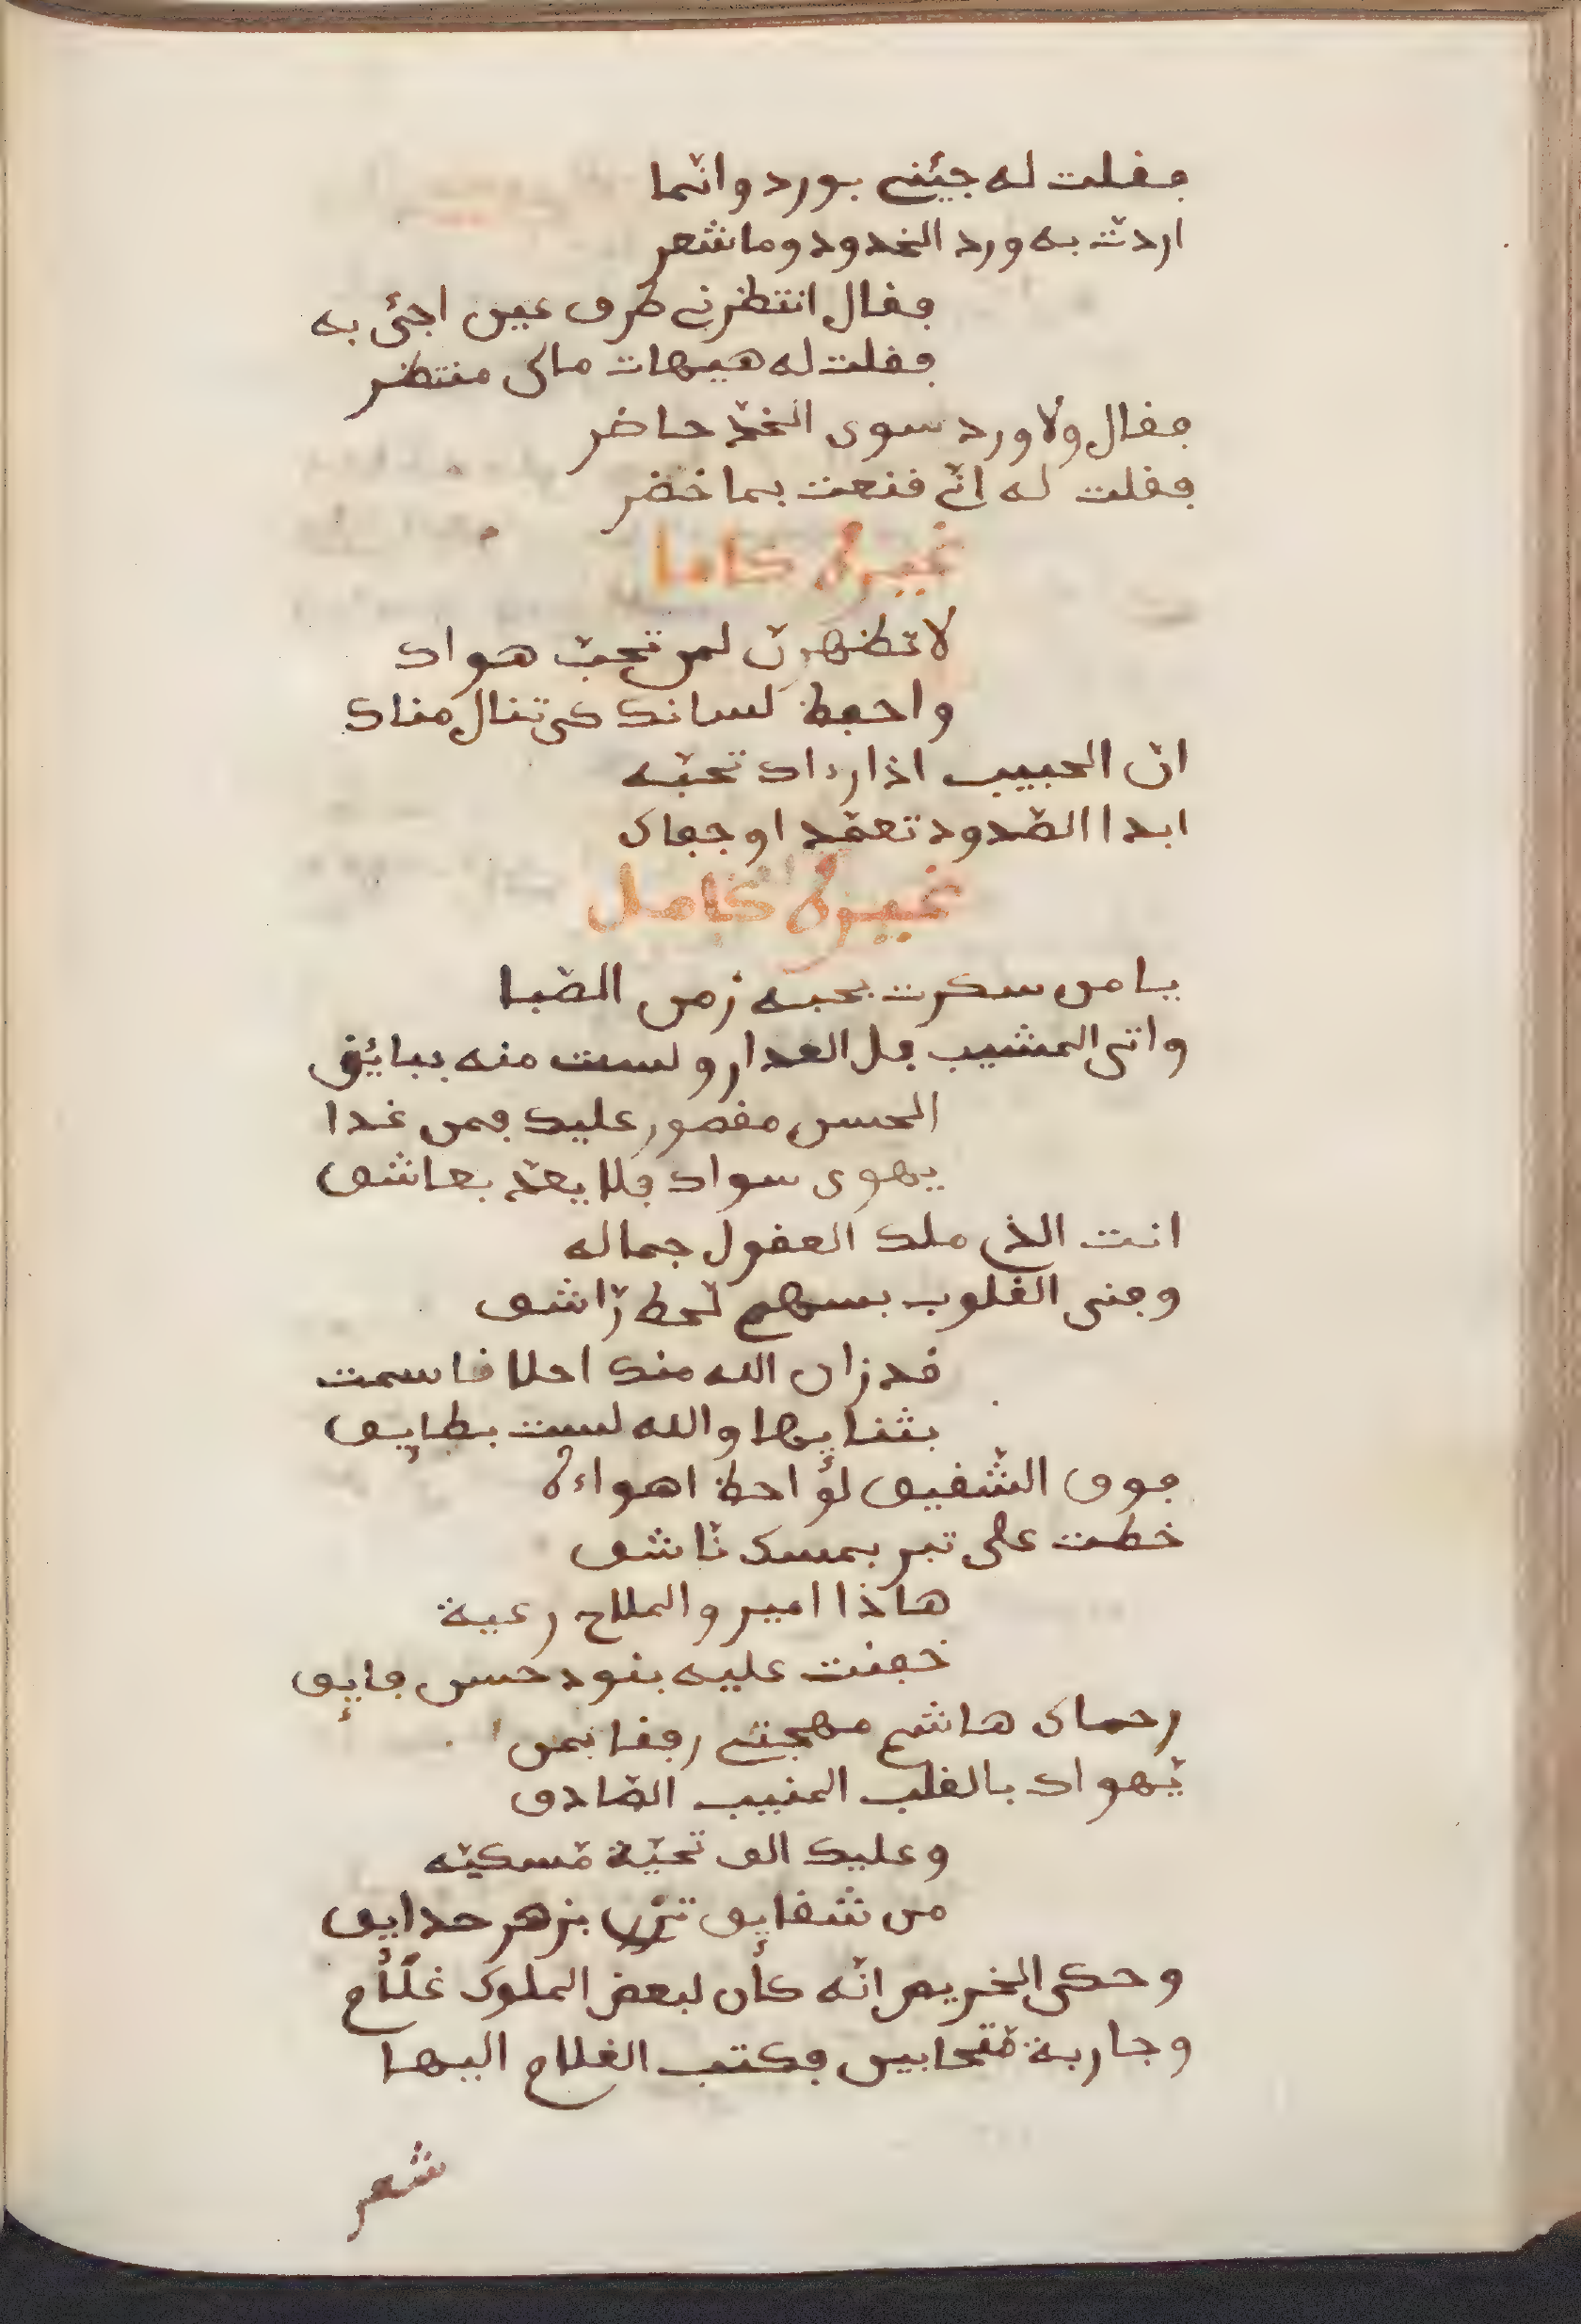 فقلت له جيئني بورد وانّما
اردت به ورد الخدود وما شعر
فقال انتظرني طرف عين اجئ به
فقلت له هيهات مالى منتظر
فقال ولا ورد سوى الخدّ حاضر
فقلت له انّي قنعت بما خضر
غيره كامل
لا تظهرنّ لمن تحبّ هواك
واحفظ لسانك كى تنال مناك
انّ الحبيب اذا رءاك تحبّه
ابدا الصّدود تعمّد اوجفاك
غيره كامل
يا من سكرت بحبه زمن الصّبا
واتى المشيب فل العدار ولست منه ببائق
الحسن مقصور عليك فمن غدا
يهوى سواك فلا يعدّ بعاشق
انت الذي ملك العقول جماله
وفنى القلوب بسهم لحظ رّاشق
قد زان الله منك احلاقا سمت
بثنايها والله لست بطايق
فوق الشّقيق لؤاحظ اهواءه
خطت على تبر بمسك نّاشق
هاذا امير والملاح رعية
خفنت عليه بنود حسن فايق
رحماك هاشم مهجتي رفقا بمن
يّهواك بالقلب المنيب الصّادق
وعليك الف تحيّة مّسكيّه
من شقايق بزهر حدايق
وحكى انّه كان لبعض الملوك غلّام
وجارية مّتحابين فكتب الغلام اليها
شعر